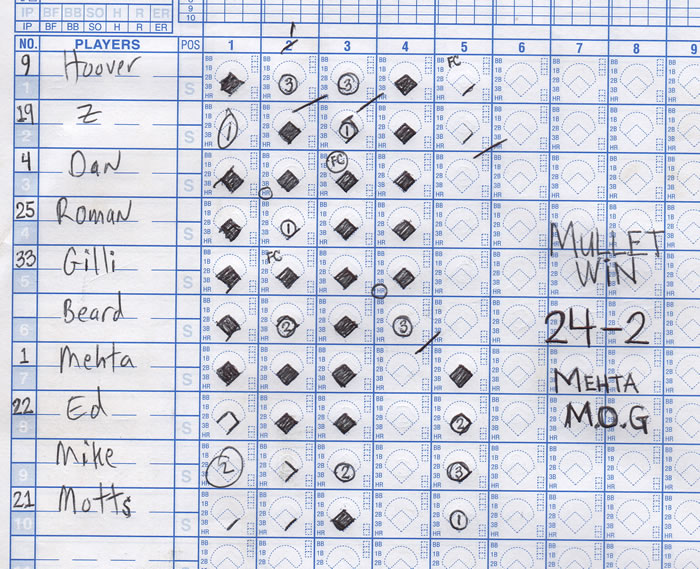 9
10
IP BF BB SO H R ER
IP BF BB SO H R ER
1
NO. PLAYERS POS 1 2 3 4 5 6 7 8 9
9 Hoover 1 S 3 3 FC
19 Z 2 S 1 1
4 Dan 3 S FC
25 Roman 4 S 1
33 Gilli 5 S FC
Beard 6 S 2 3
1 Mehta 7 S
22 Ed 8 S 2
Mike 9 S 2 2 3
21 Motts 10 S 1
MULLET
WIN
24-2
MEHTA
M.O.G